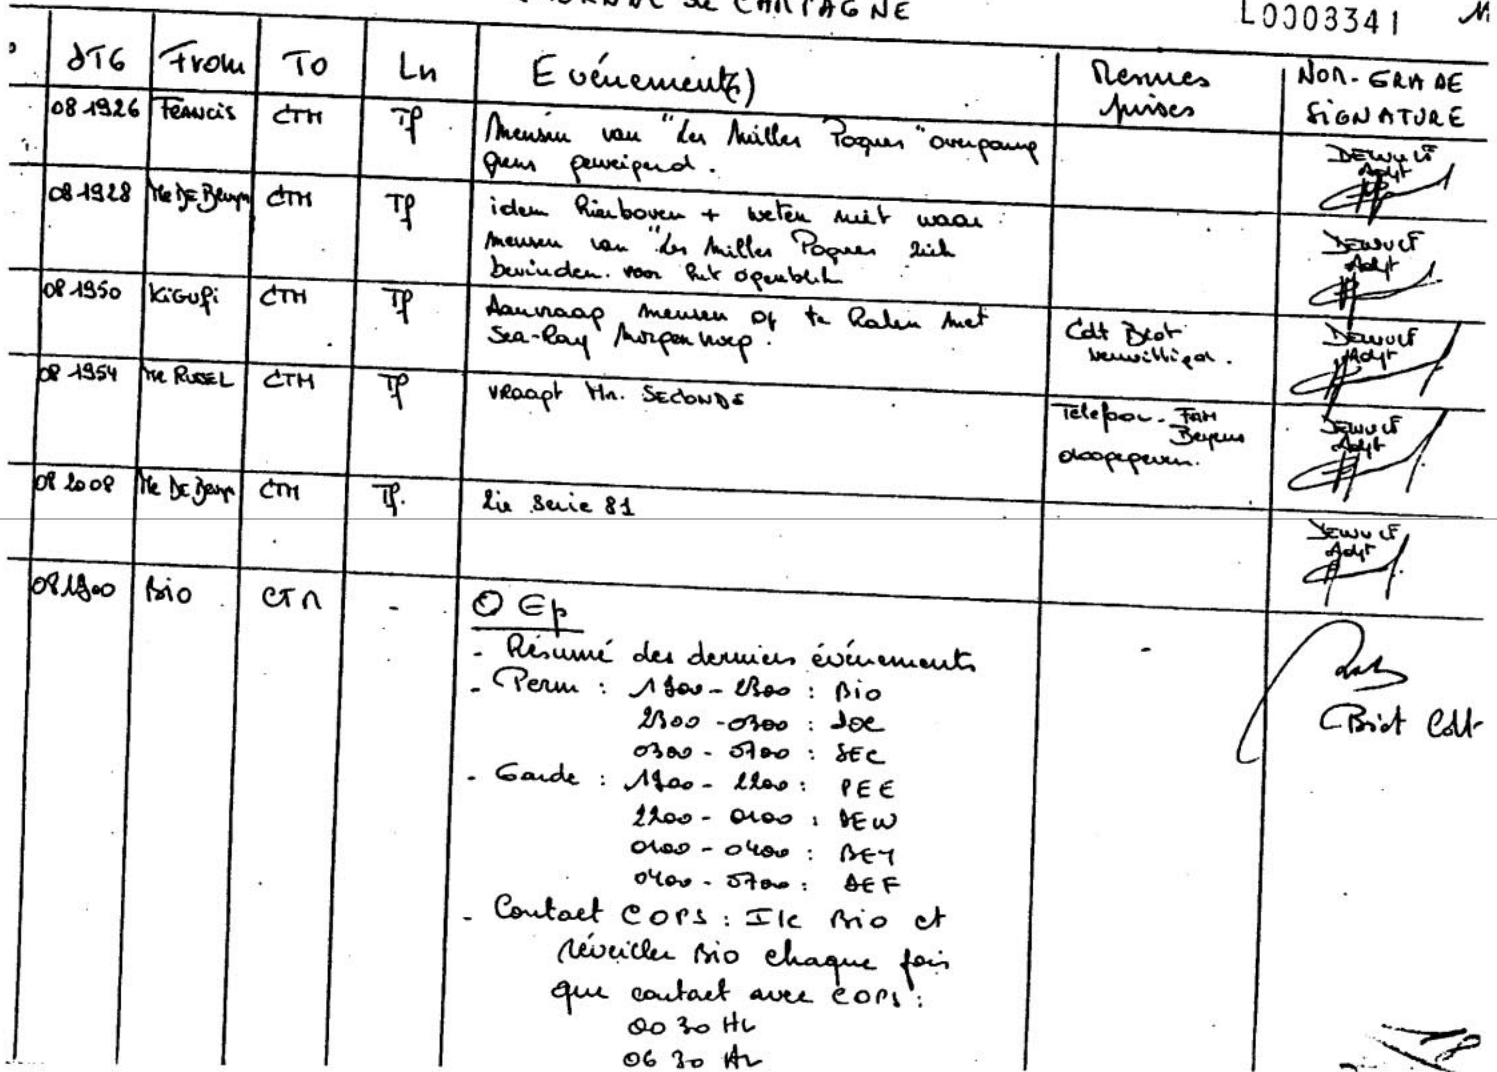 JOURNAL de CAMPAGNE
L0003341
DTG From To Ln Evénement(s) Mesures prises NOM-GRADE SIGNATURE
081926 FRANCIS CTM Tf Mensen van "Les Milles Poques" overgang
grens geweigerd.
DEWULF
Adjt
081928 Me De Bruyn CTM Tf idem hierboven + weten niet waar
mensen van "Les Milles Poques zich
bevinden. voor het ogenblik
DEWULF
Adjt
081950 KIGUFI CTM Tf Aanvraag mensen op te halen met
Sea-Ray morgen vroeg.
Cdt Biot
bewilligd.
DEWULF
Adjt
081954 Me RUSEL CTM Tf VRaagt Mr. SECONDE
Telefoon FAM
Beyens
doorgegeven.
DEWULF
Adjt
082008 Me De Bruyn CTM Tf. Zie serie 81
DEWULF
Adjt
081900 Bio CTM - O Ep
- Résumé des derniers événements
- Perm : 1900 - 2300 : Bio
2300 - 0300 : DOC
0300 - 0700 : SEC
- Garde : 1900 - 2200 : PEE
2200 - 0100 : DEW
0100 - 0400 : BEY
0400 - 0700 : DEF
- Contact COPS : Ilc Bio et
réveiller Bio chaque fois
que contact avec COPS :
0030 Hr
0630 Hr
-
Biot Cdt